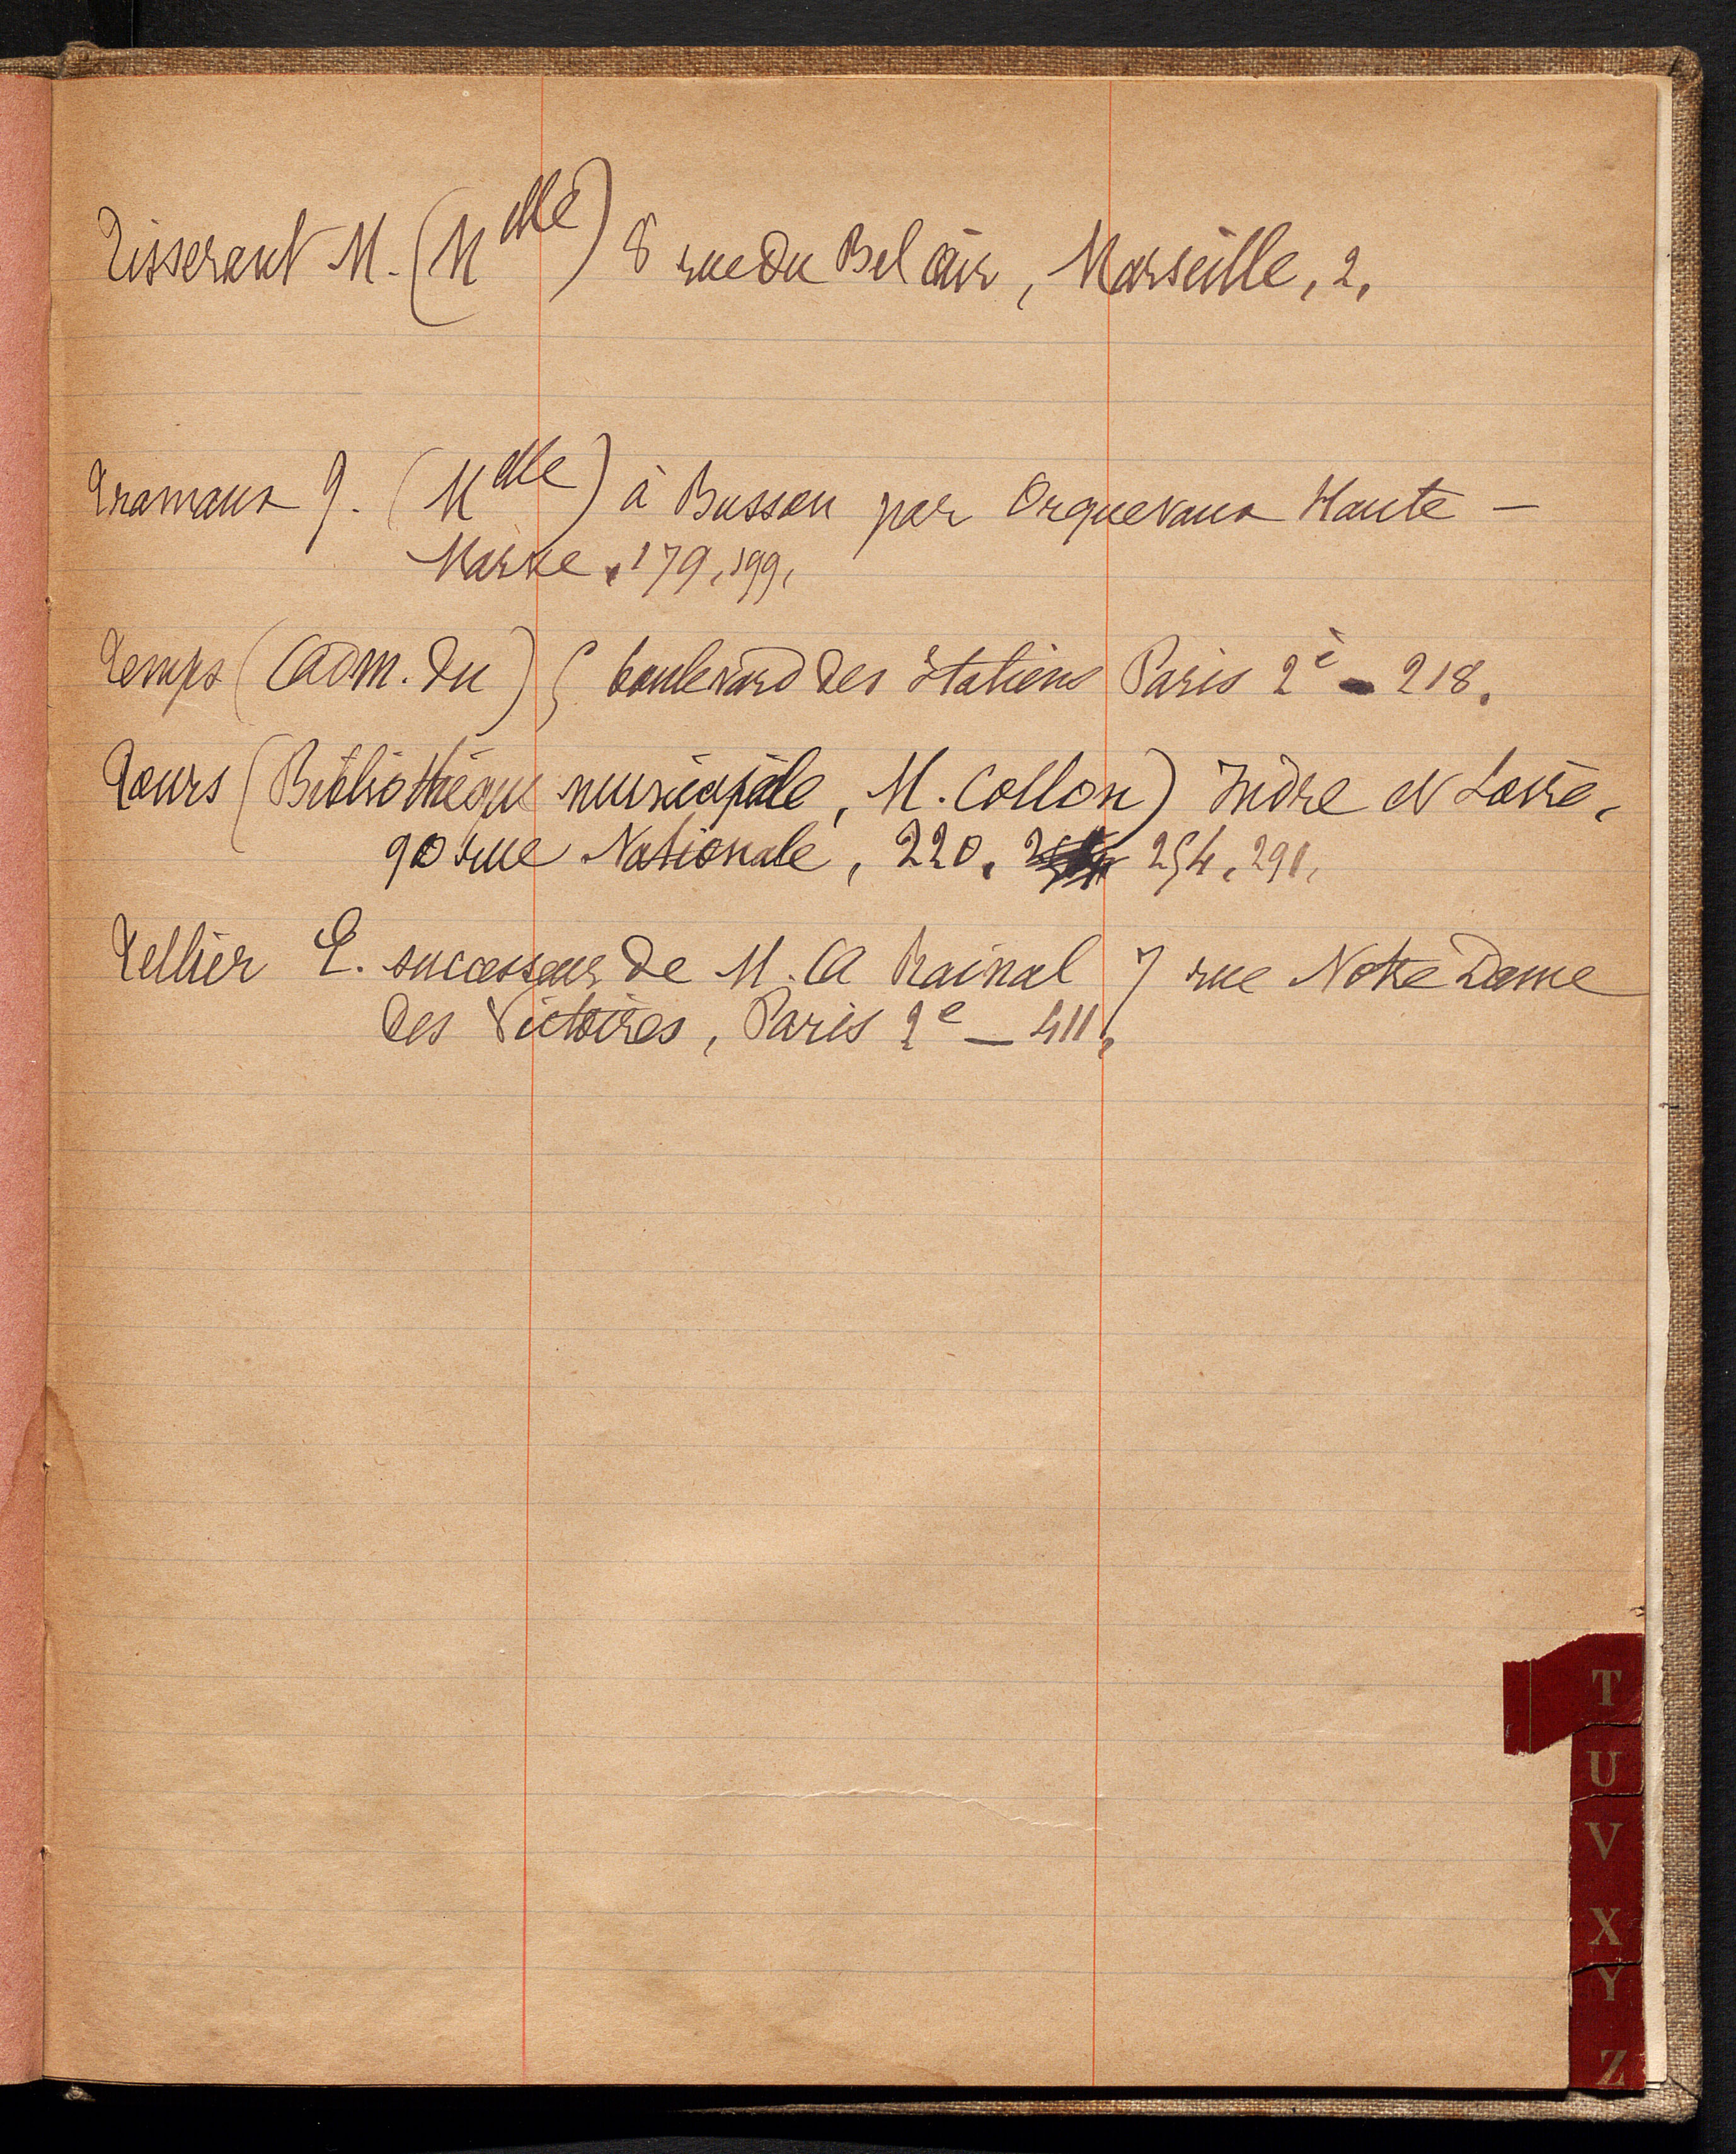 Tisserant M. (Mdlle) 8 rue du Bel air, Marseille, 2,
Tramaux J. (Mdlle) à Busson par Orquevaux Haute -
Marne, 179, 199,
Temps (Adm. du) 5 boulevard des Italiens Paris 2e - 218,
Tours (Bibliothèque municipale, M. Collon) Indre et Loire,
90 rue Nationale, 220, 254, 291,
Tellier E. successeur de M. A Rainal 7 rue Notre Dame
des Victoires, Paris 2e - 411,
T
U
V
X
Y
Z